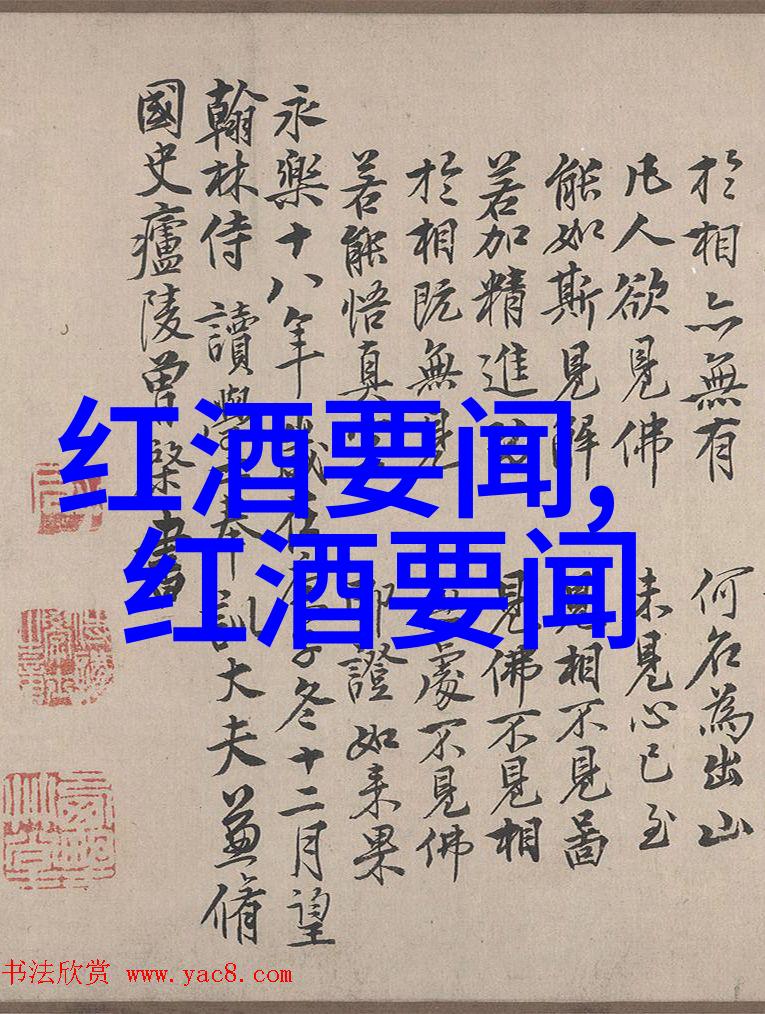 於相亦無有　何名為出山
凡人欲見佛　未見心已至
能如斯見解
若加精進　見佛不見相
於相既無　處不見佛
若能悟真　證如来果
永樂十八年　冬十二月望
翰林侍讀學　大夫兼脩
國史廬陵曾棨書
红酒要闻,
红酒要闻
书法欣赏 www.yac8.com